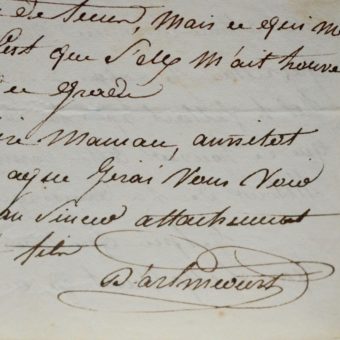 de teems, mais ce qui m
c'est que Selx m'ait trouvé
ce grade
ire Maman, aussitot
que Girai vous voir
au sincer attachement
fils
D'arlincourt